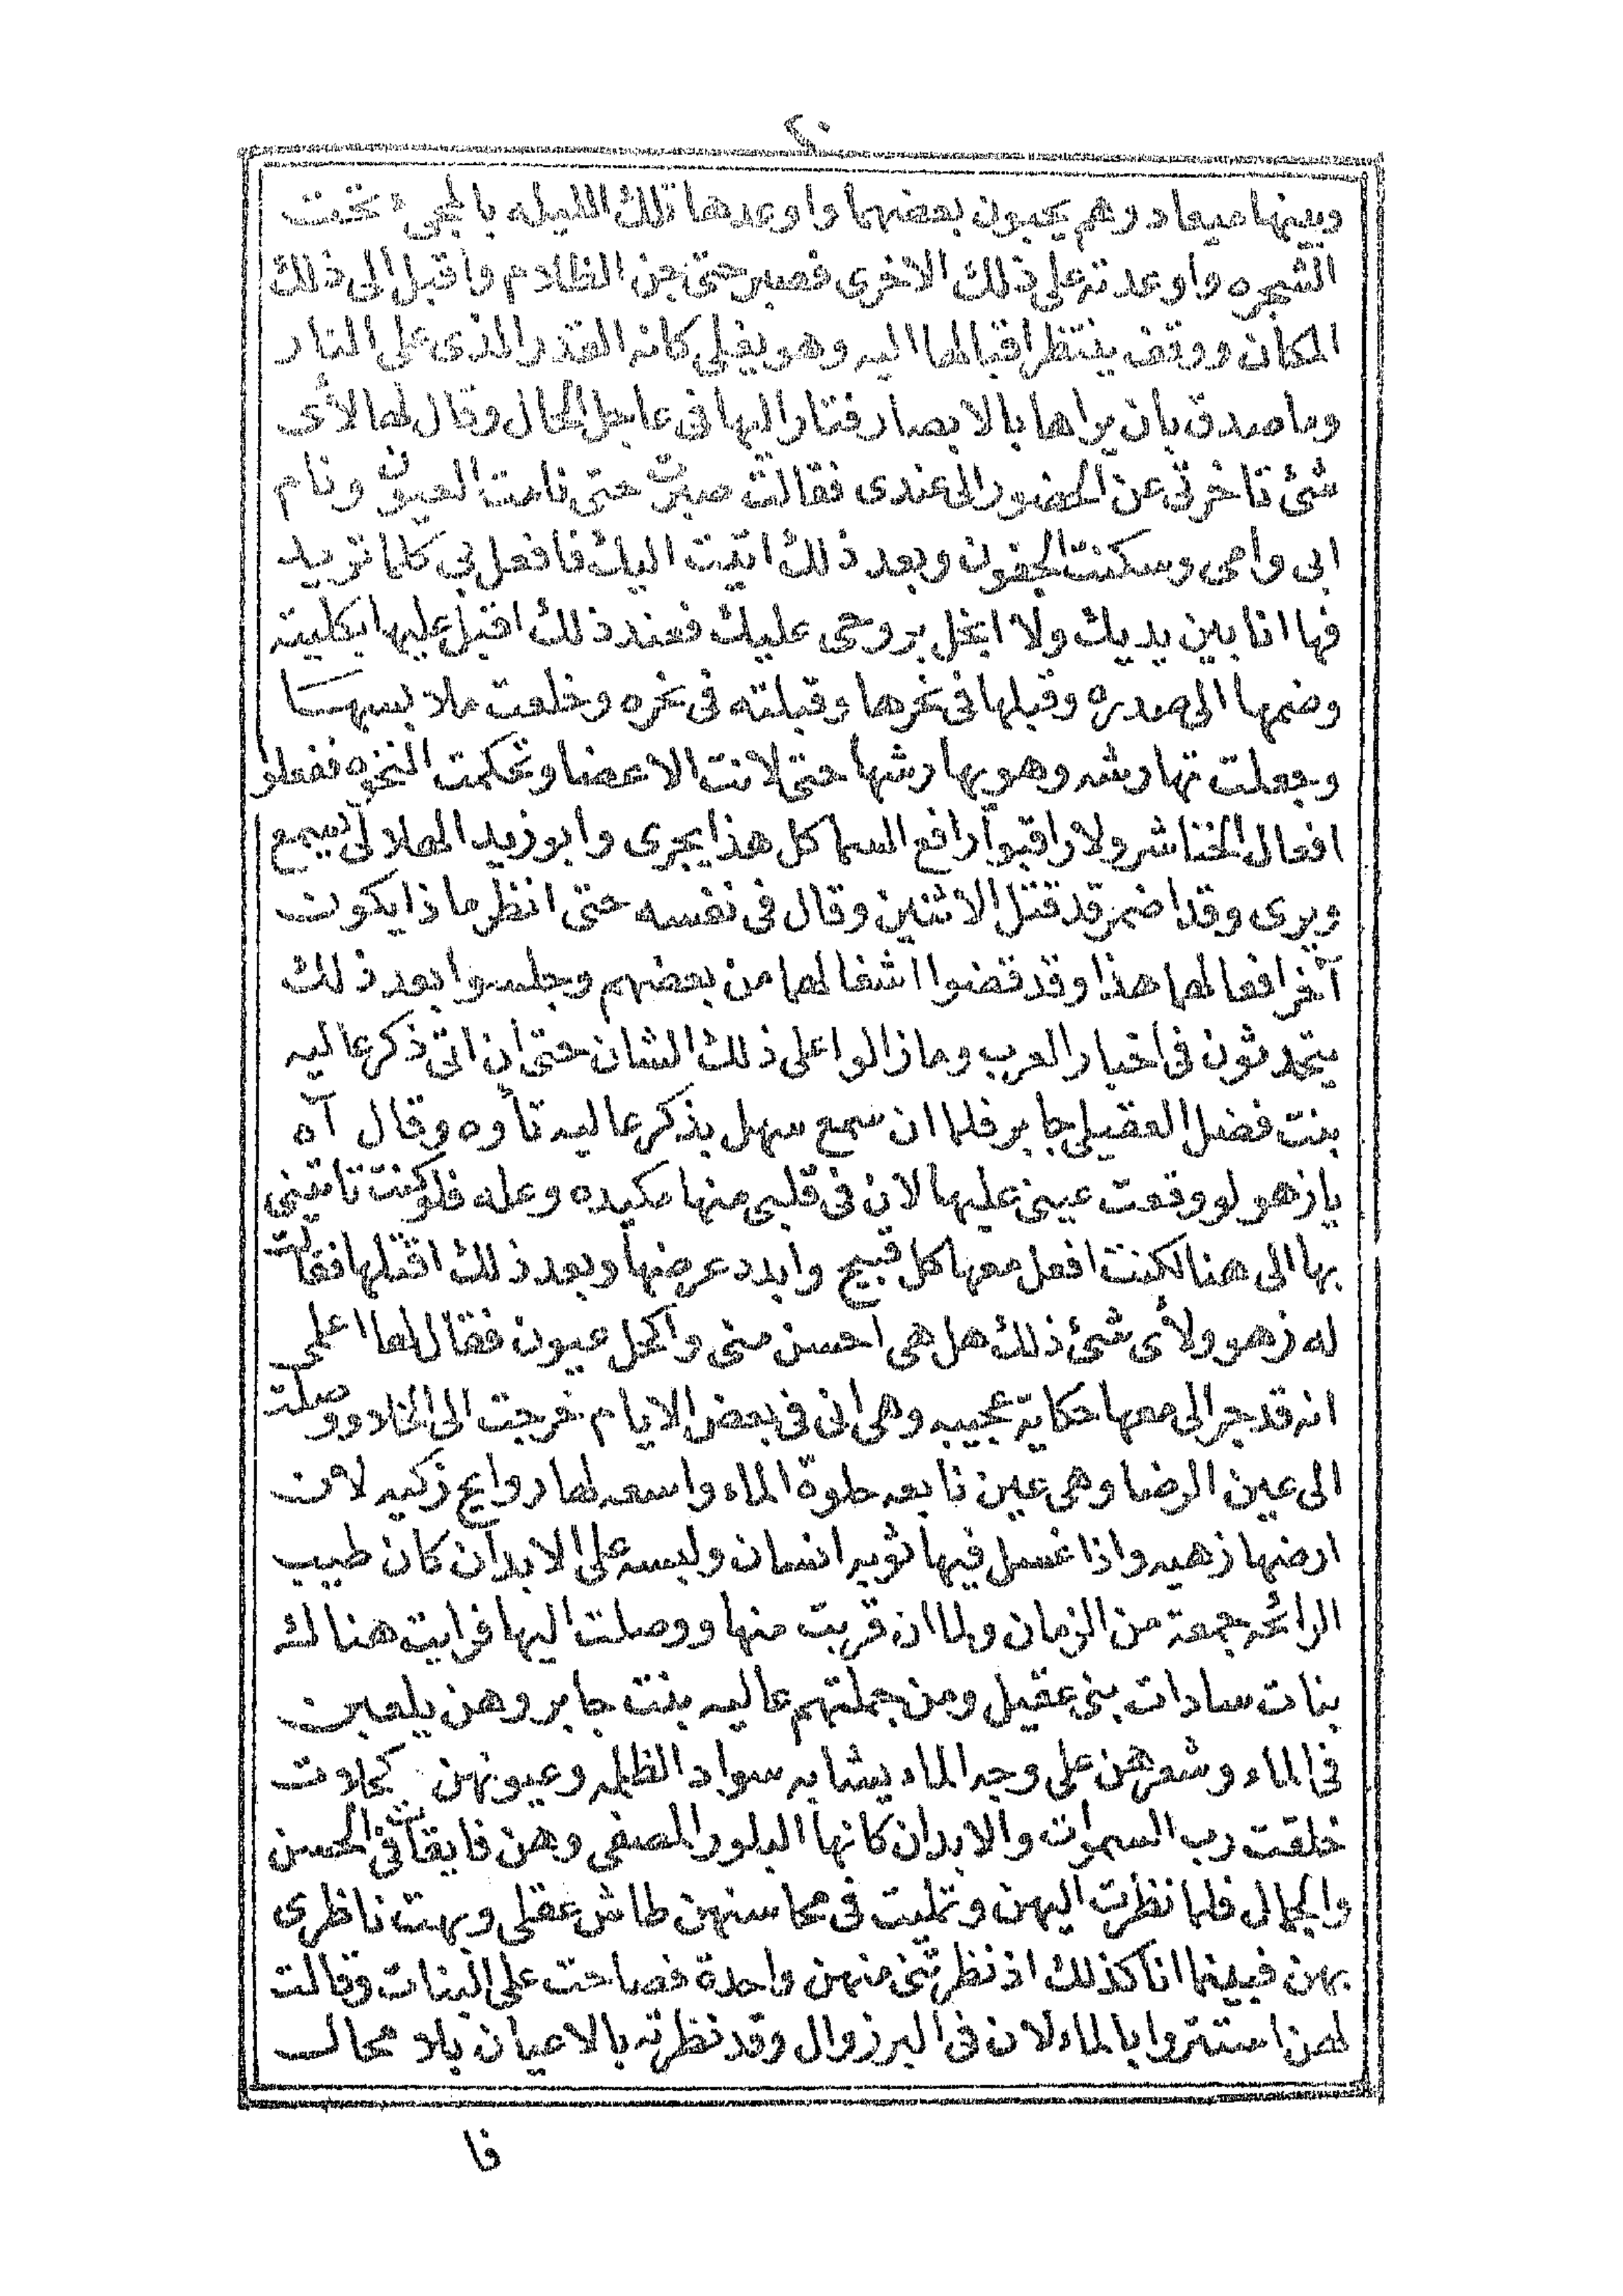 ٢٠
وبينها ميعاد وهم يحبون بعضهما واوعدها تلك الليله بالمجئ تحت
الشجره واوعدته على ذلك الاخرى فصبر حتى جن الظلام واقبل الى ذلك
المكان ووقف ينتظر اقبالها اليه وهو يغلى كانه القدر الذى على النار
وما صدق بان يراها بالابصار فثار اليها فى عاجل الحال وقال لها لأى
شئ تاخرتى عن الحضور الى عندى فقالت صبرت حتى نامت العيون ونام
ابى وامى وسكنت الجفون وبعد ذلك اتيت اليك فافعل بى كلما تريد
فها انا بين يديك ولا ابخل بروحى عليك فعند ذلك اقبل عليها بكليته
وضمها الى صدره وقبلها فى نحرها وقبلته فى نحره وخلعت ملابسها
وجعلت تهارشه وهو يهارشها حتى لانت الاعضا وتحكمت النخزه ففعلوا
افعال الخناشر ولا راقبوا رافع السما كل هذا يجرى وابو زيد الهلالى يسمع
ويرى وقد اضمر قد قتل الاثنين وقال فى نفسه حتى انظر ماذا يكون
آخر افعالهما هذا وقد قضوا اشغالهما من بعضهم وجلسوا بعد ذلك
يتحدثون فى اخبار العرب وما زالوا على ذلك الشان حتى ان اتى ذكر عاليه
بنت فضل العقيلى جابر فلما ان سمع سهل بذكر عاليه تأوه وقال آه
يا زهو لو وقعت عينى عليها لان فى قلبى منها مكيده وعله فلو كنت تاتينى
بها الى هنا لكنت افعل معها كل قبيح وابدد عرضها وبعد ذلك اقتلها فقالت
له زهو ولأى شئ ذلك هل هى احسن منى واكحل عيون فقال لها اعلمى
انه قد جرالى معها حكاية عجيبه وهى انى فى بعض الايام خرجت الى الخلا ووصلت
الى عين الرضا وهى عين نابعه حلوة الماء واسعه لها روايح زكيه لان
ارضها زهيه واذا غسل فيها ثوبه انسان ولبسه على الابدان كان طيب
الرائحه جمعة من الزمان ولما ان قربت منها ووصلت اليها فرايت هناك
بنات سادات بنى عقيل ومن جملتهم عاليه بنت جابر وهن يلعبن
فى الماء وشعرهن على وجه الماء يشابه سواد الظلمه وعيونهن كحلات
خلقت رب السموات والابدان كانها البلور المصفى وهن فايقات فى الحسن
والجمال فلما نظرت اليهن وتمليت فى محاسنهن طاش عقلى وبهت ناظرى
بهن فبينما انا كذلك اذ نظرتنى منهن واحدة فصاحت على البنات وقالت
لهن استتروا بالماء لان فى البر زوال وقد نظرته بالاعيان بلا محال
فا